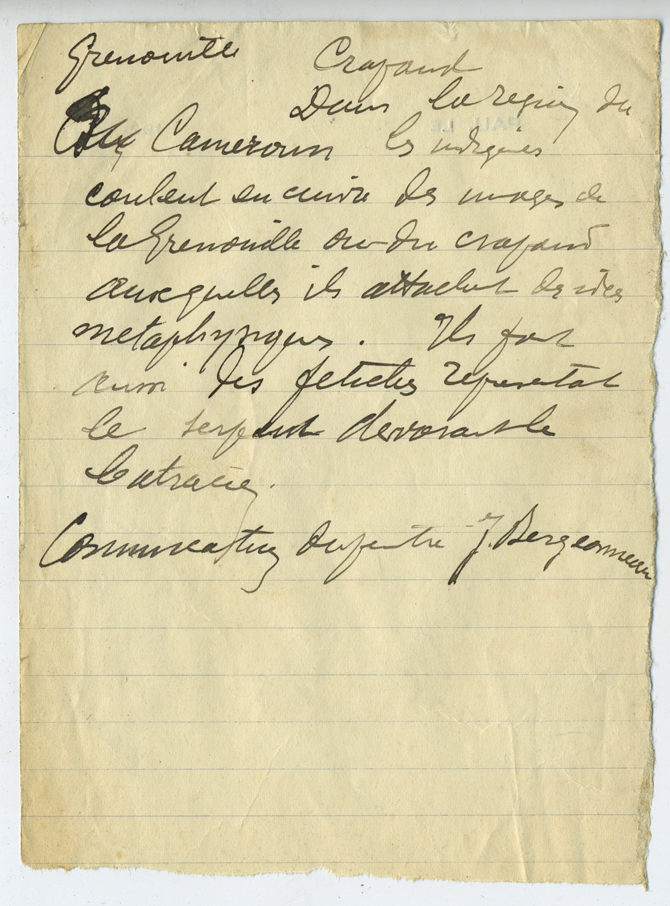 Grenouille Crapaud
Dans la region du
Cameroun les indigènes
coulent en cuivre des images de
la Grenouille ou du crapaud
auxquelles ils attachent des idées
metaphysiques. Ils font
aussi des fetiches representant
le serpent devorant le
batracien.
Communication du peintre J. Bergeonneau